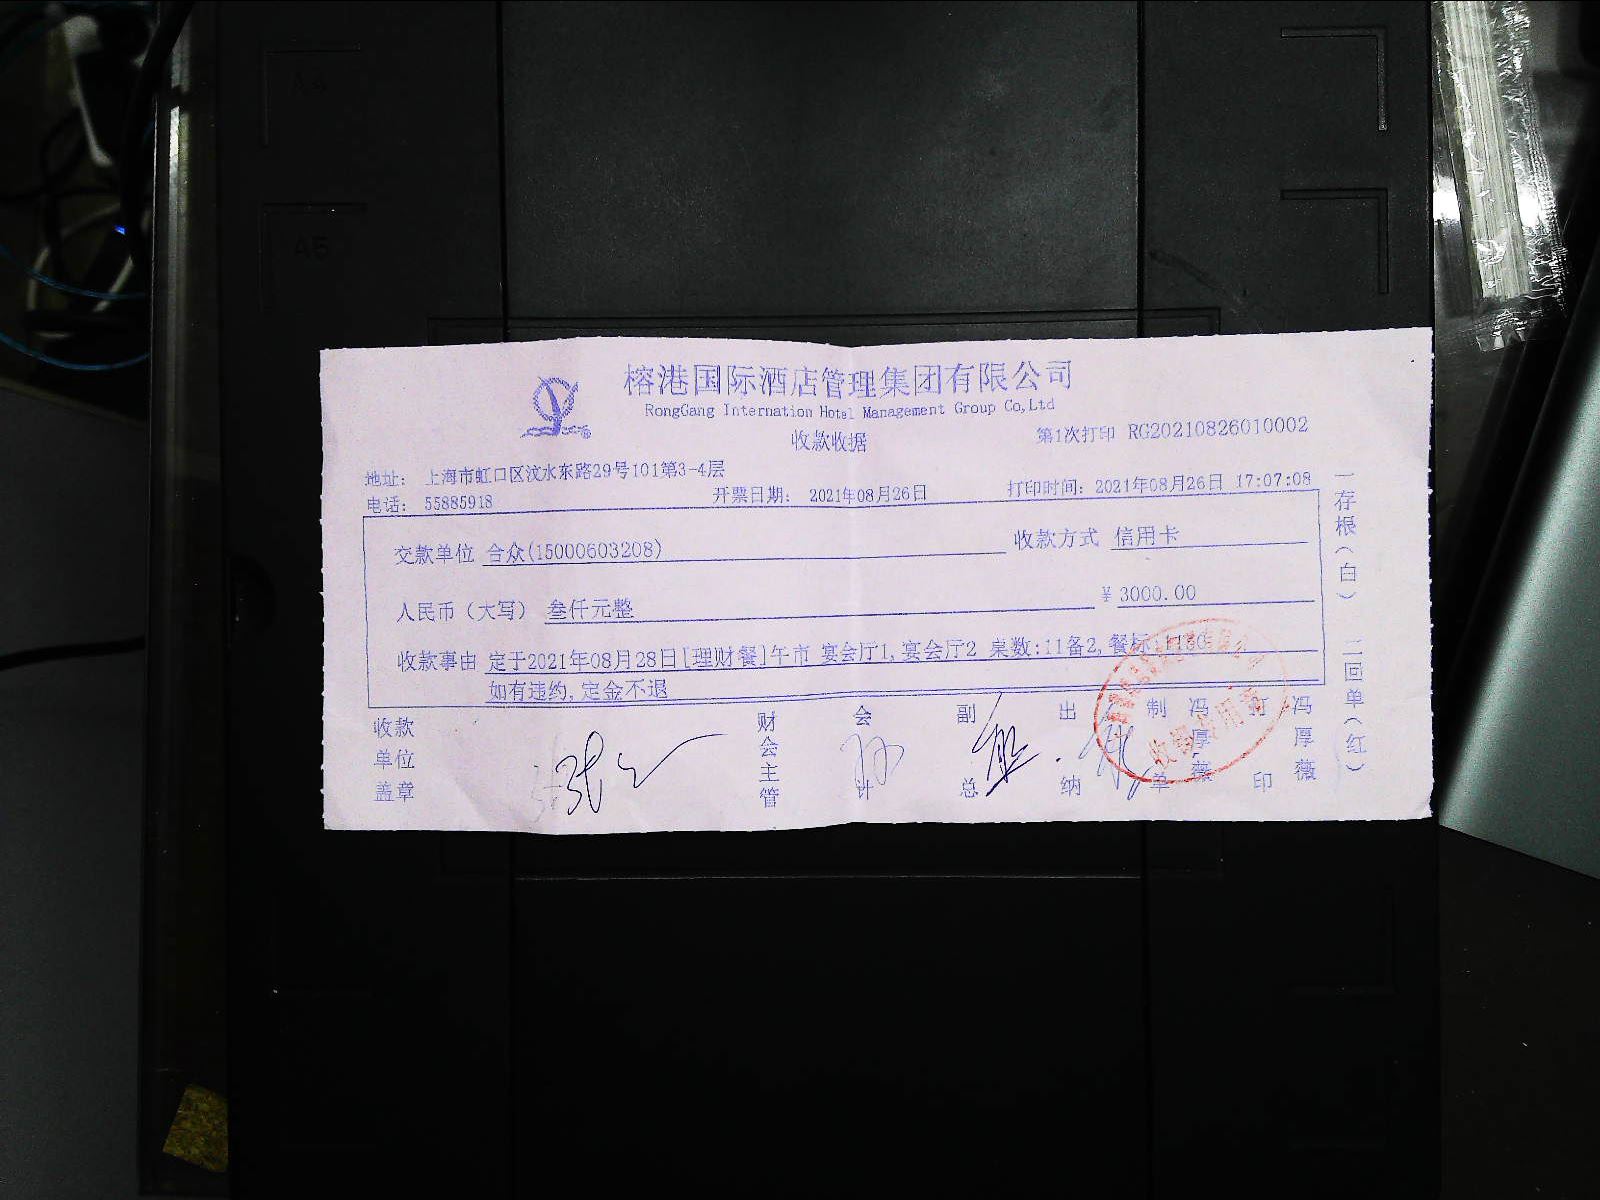 榕港国际酒店管理集团有限公司
RongGang Internation Hotel Management Group Co,Ltd
收款收据
第1次打印 RG20210826010002
地址: 上海市虹口区汶水东路29号101第3-4层
电话: 55885918 开票日期: 2021年08月26日 打印时间: 2021年08月26日 17:07:08
交款单位 合众(15000603208) 收款方式 信用卡
人民币（大写） 叁仟元整 ¥ 3000.00
收款事由 定于2021年08月28日[理财餐]午市 宴会厅1,宴会厅2 桌数:11备2,餐标:1180
如有违约,定金不退
收款单位盖章 财会主管 会计 副总 出纳 制单 冯厚薇 打印 冯厚薇
一存根（白） 二回单（红）
A5